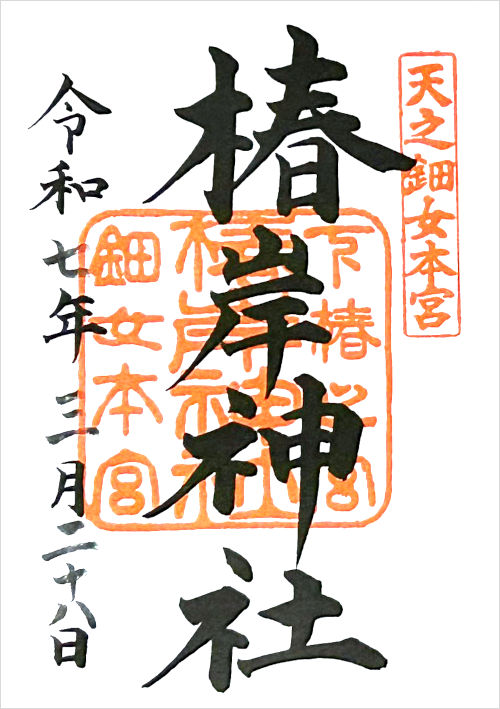 天之鈿女本宮
椿岸神社
令和七年三月二十八日
下椿
椿岸神社
鈿女本宮